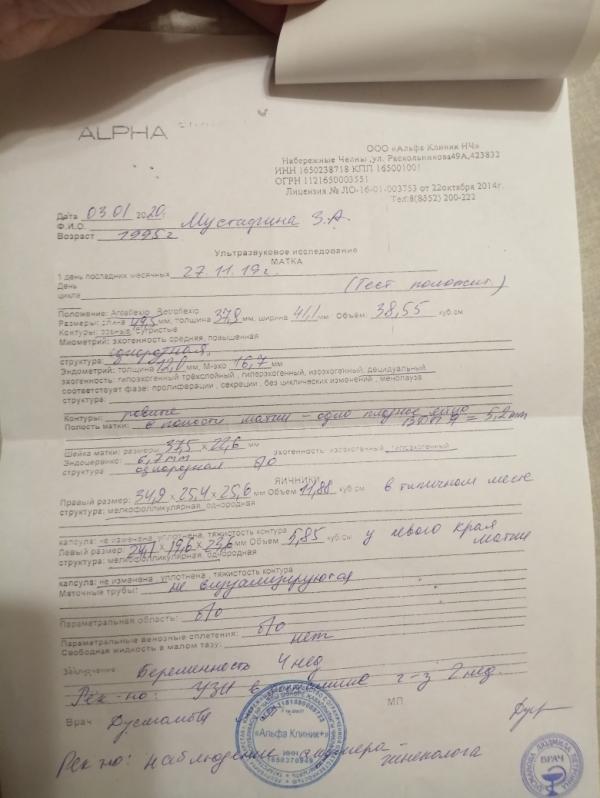 ALPHA
ООО «Альфа Клиник НЧ»
Набережные Челны ,ул. Раскольникова49А,423832
ИНН 1650238718 КПП 165001001
ОГРН 1121650003551
Лицензия № ЛО-16-01-003753 от 22октября 2014г.
Тел:8(8552) 200-222
Дата 03.01 2020г
Ф.И.О. Мустафина З.А.
Возраст 1995г
Ультразвуковое исследование
МАТКА
1 день последних месячных 27.11.19г.
День (Тест положит)
цикла
Положение: Anteflexio Retroflexio
Размеры: длина 49,5 мм, толщина 37,9 мм, ширина 41,1 мм. Объём: 38,55 куб.см
Контуры: ровные, бугристые
Миометрий: эхогенность средняя, повышенная
структура: однородная
Эндометрий: толщина 12,0 мм, М-эхо 16,7 мм
эхогенность: гипоэхогенный трёхслойный , гиперэхогенный, изоэхогенный, децидуальный
соответствует фазе: пролиферации , секреции , без циклических изменений , менопауза
структура:
Контуры: ровные
Полость матки: в полости матки - одно плодное яйцо = 5,2 mm
Шейка матки: размеры 37,5 x 22,6 мм эхогенность: изоэхогенный гипоэхогенный
Эндоцервикс: 6,7 mm
структура однородная б/о
ЯИЧНИКИ
Правый размер: 34,9 x 25,4 x 25,6 мм Объем 11,88 куб см в типичном месте
структура: мелкофолликулярная, однородная
капсула: не изменена , уплотнена, тяжистость контура
Левый размер: 24,1 x 19,6 x 23,6 мм Объем 5,85 куб.см у левого края матки
структура: мелкофолликулярная, однородная
капсула: не изменена , уплотнена , тяжистость контура
Маточные трубы: не визуализируются
Параметральная область: б/о
Параметральные венозные сплетения: б/о
Свободная жидкость в малом тазу: нет
Заключение Беременность 4 нед
Рек-но: УЗИ в ч-з 2 нед.
Врач МП
«Альфа Клиник»
Рек но: наблюдение гинеколога
ВРАЧ